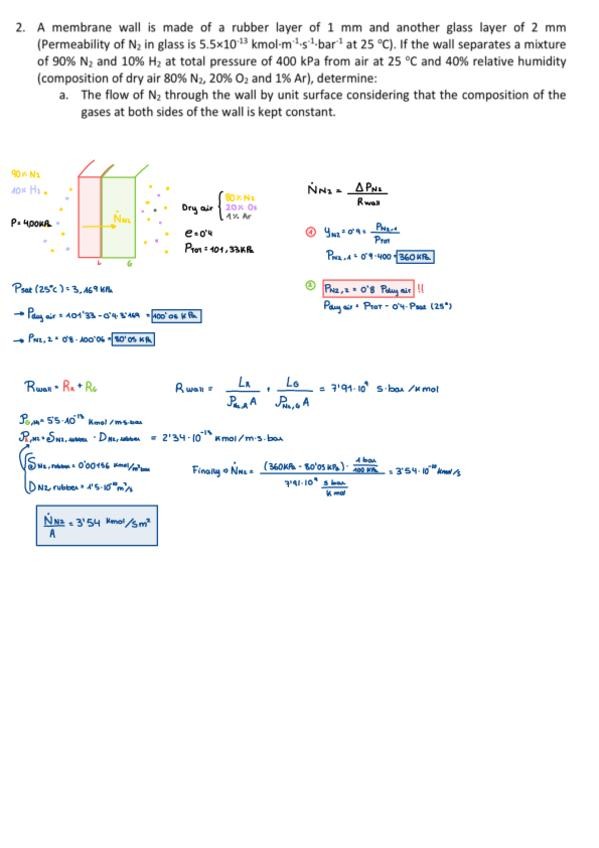 2. A membrane wall is made of a rubber layer of 1 mm and another glass layer of 2 mm
(Permeability of N₂ in glass is 5.5×10⁻¹³ kmol·m⁻¹·s⁻¹·bar⁻¹ at 25 °C). If the wall separates a mixture
of 90% N₂ and 10% H₂ at total pressure of 400 kPa from air at 25 °C and 40% relative humidity
(composition of dry air 80% N₂, 20% O₂ and 1% Ar), determine:
a. The flow of N₂ through the wall by unit surface considering that the composition of the
gases at both sides of the wall is kept constant.
90% N₂
10% H₂
P = 400 kPa
ṄN₂
L G
Dry air { 80% N₂
20% O₂
1% Ar
e = 0'4
PTOT = 101,33 kPa
ṄN₂ = ΔPN₂ / Rwall
① yN₂ = 0'9 = PN₂,1 / PTOT
PN₂,1 = 0'9·400 = 360 kPa
② PN₂,2 = 0'8 Pdry air !!
Pdry air = PTOT - 0'4·Psat (25°)
Psat (25°C) = 3,169 kPa
→ Pdry air = 101'33 - 0'4·3'169 = 100'06 kPa
→ PN₂,2 = 0'8·100'06 = 80'05 kPa
Rwall = RR + RG
Rwall = LR / PN₂,R A + LG / PN₂,G A = 7'91·10⁹ s·bar/kmol
PG,N₂ = 5'5·10⁻¹³ kmol/m·s·bar
PR,N₂ = SN₂,rubber · DN₂,rubber = 2'34·10⁻¹³ kmol/m·s·bar
SN₂,rubber = 0'00156 kmol/m³bar
DN₂ rubber = 1'5·10⁻¹⁰ m²/s
Finally → ṄN₂ = (360kPa - 80'05 kPa) · 1 bar / 100 kPa / 7'91·10⁹ s bar / kmol = 3'54·10⁻¹⁰ kmol/s
ṄN₂ / A = 3'54 kmol/sm²